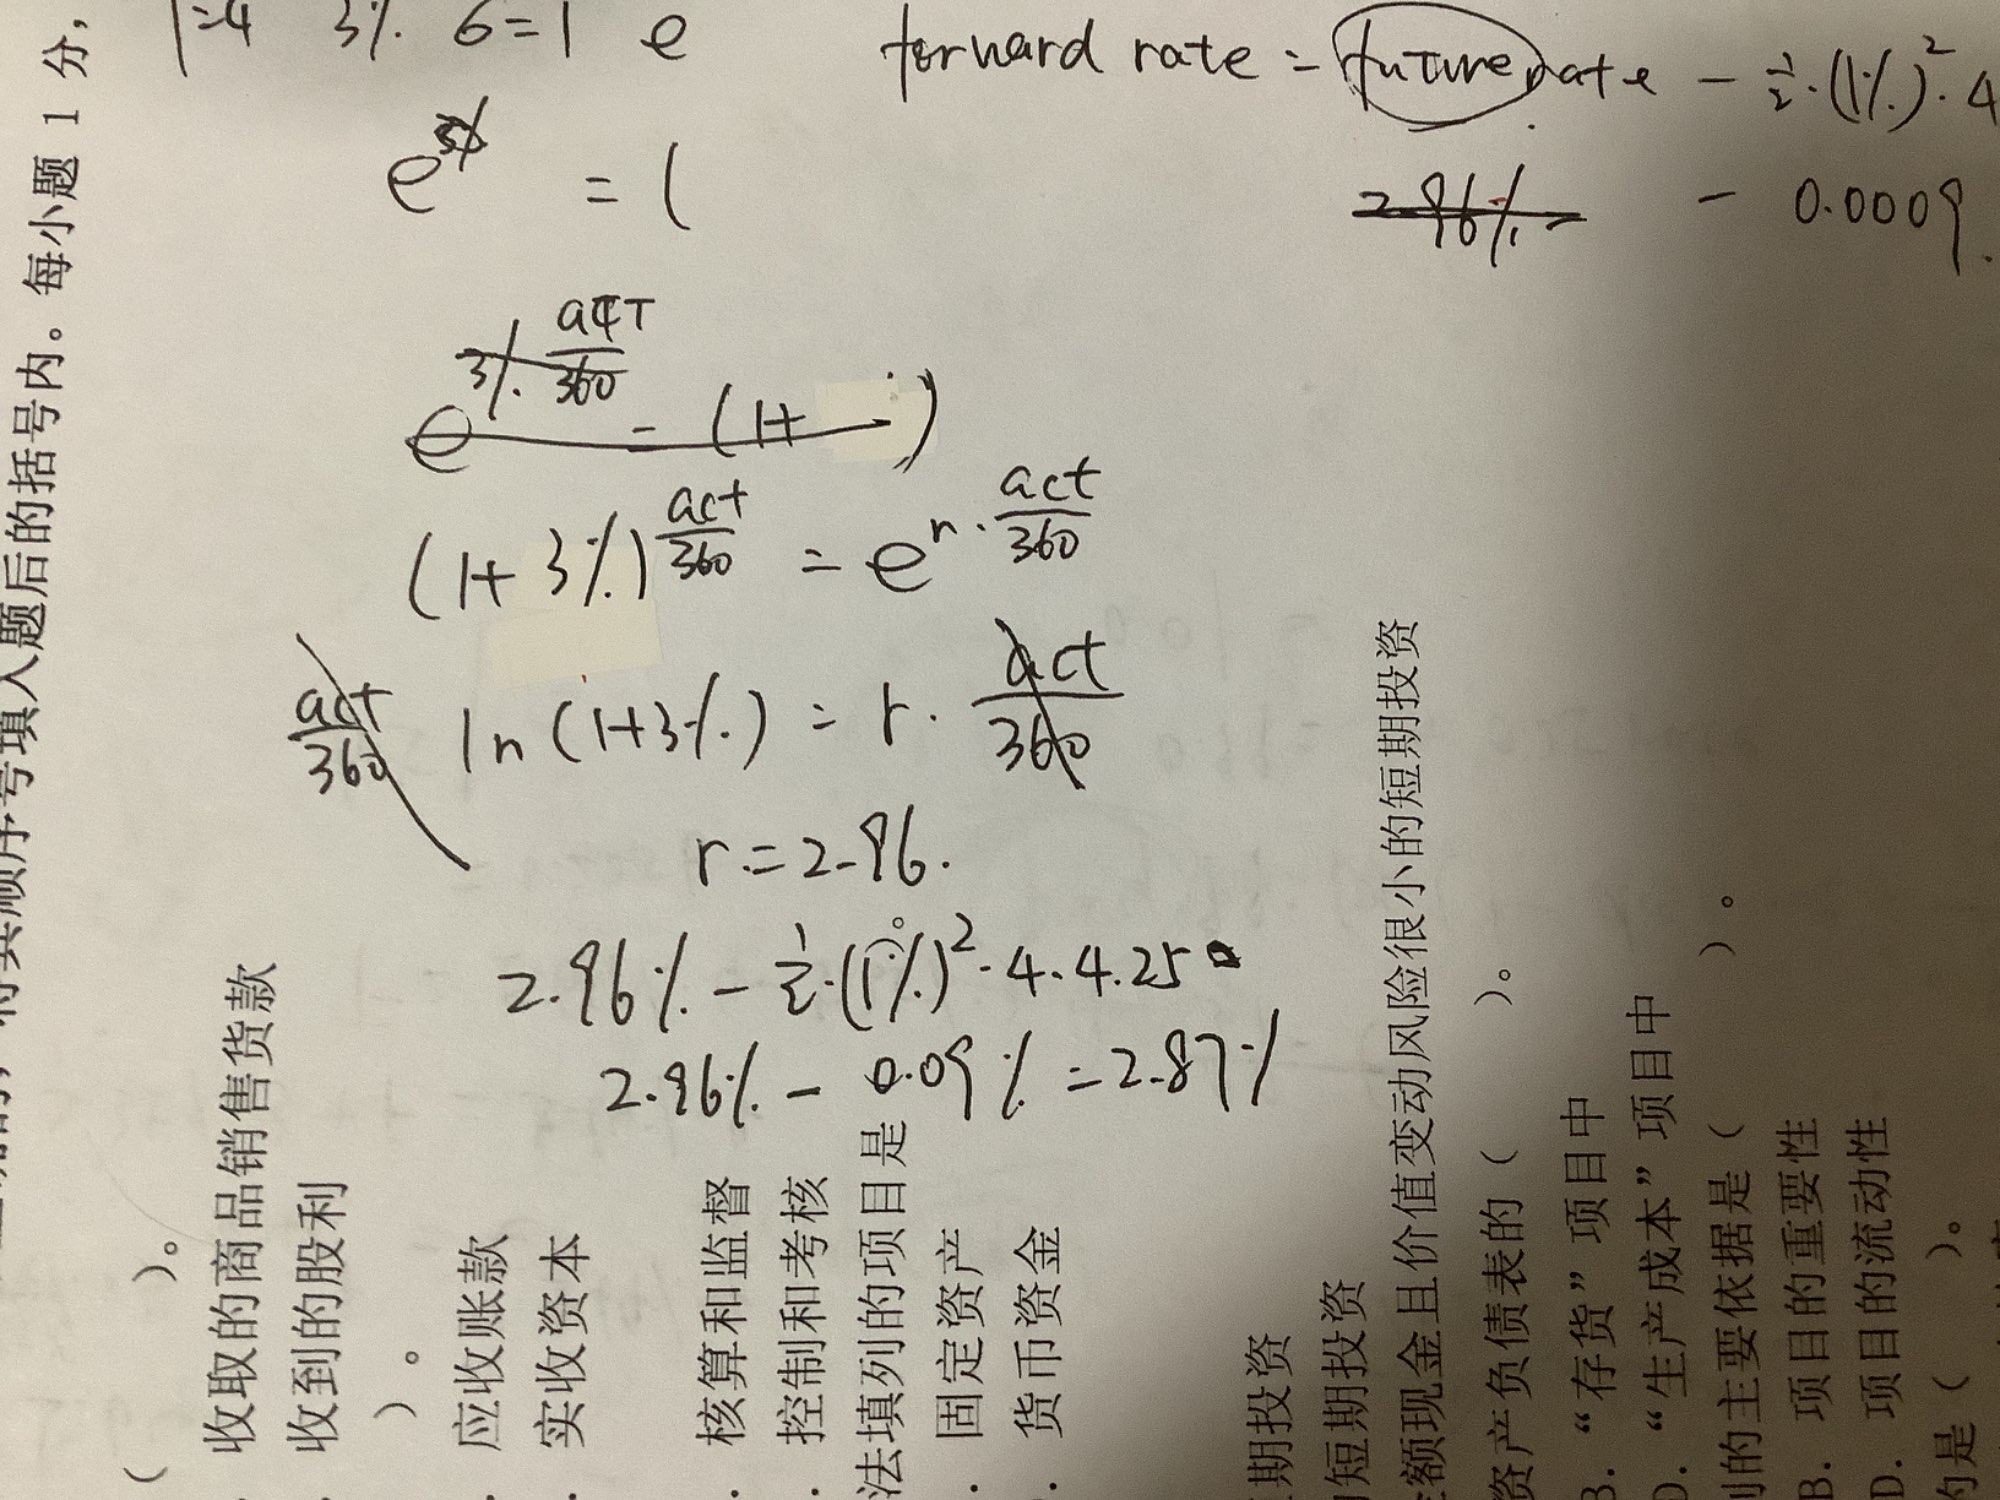 forward rate = future rate - 1/2·(1%)²·4
2.96% - 0.0009
= (
3%· act/360
e = (1+ )
(1+3%)^(act/360) = e^(r·act/360)
act/360 ln(1+3%) = r· act/360
r = 2.96.
2.96% - 1/2·(1%)²·4·4.25
2.96% - 0.09% = 2.87%
号填入题后的括号内。每小题 1 分,
( )。
收取的商品销售货款
收到的股利
)。
应收账款
实收资本
核算和监督
控制和考核
法填列的项目是
固定资产
货币资金
期投资
短期投资
金额现金且价值变动风险很小的短期投资
资产负债表的( )。
B. “存货”项目中
D. “生产成本”项目中
的主要依据是( )。
B. 项目的重要性
D. 项目的流动性
的是( )。